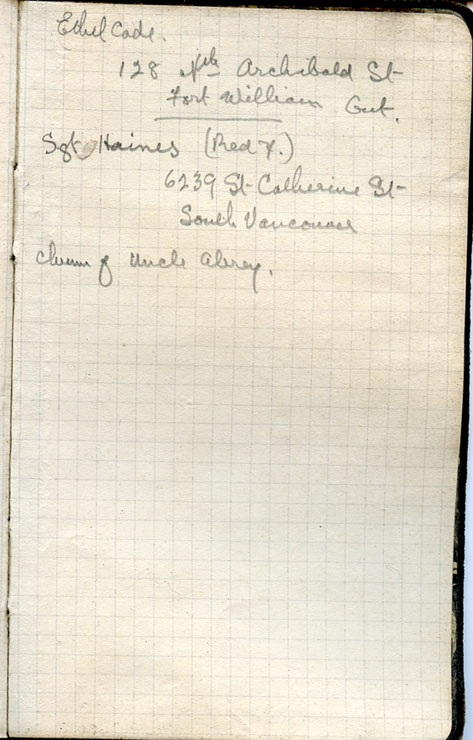 Ethel Cade.
128 Nth Archibald St
Fort William Ont.
Sgt Haines (Red X.)
6239 St Catherine St
South Vancouver
chum of Uncle